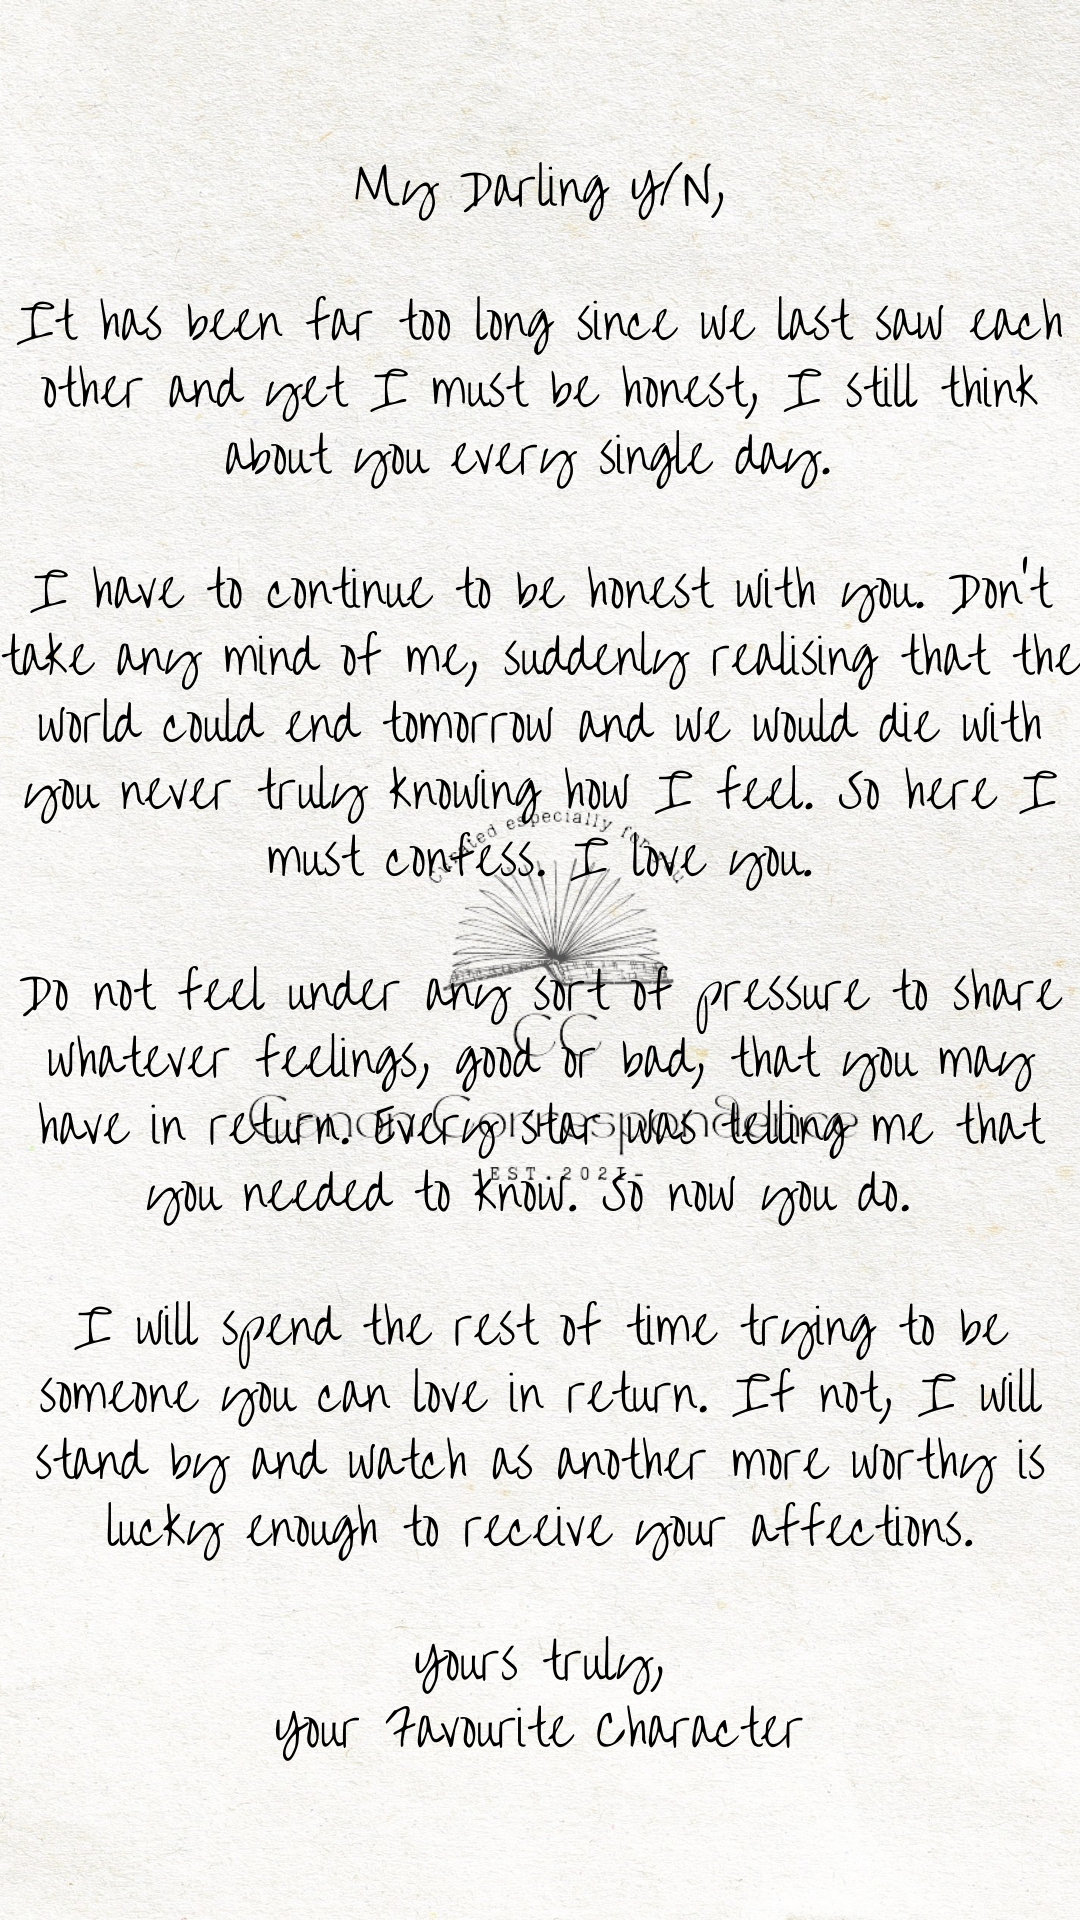 My Darling Y/N,
It has been far too long since we last saw each
other and yet I must be honest, I still think
about you every single day.
I have to continue to be honest with you. Don't
take any mind of me, suddenly realising that the
world could end tomorrow and we would die with
you never truly knowing how I feel. So here I
must confess. I love you.
Do not feel under any sort of pressure to share
whatever feelings, good or bad, that you may
have in return. Every star was telling me that
you needed to know. So now you do.
I will spend the rest of time trying to be
someone you can love in return. If not, I will
stand by and watch as another more worthy is
lucky enough to receive your affections.
Yours truly,
Your Favourite Character
especially
CC
Correspondence
EST. 2021